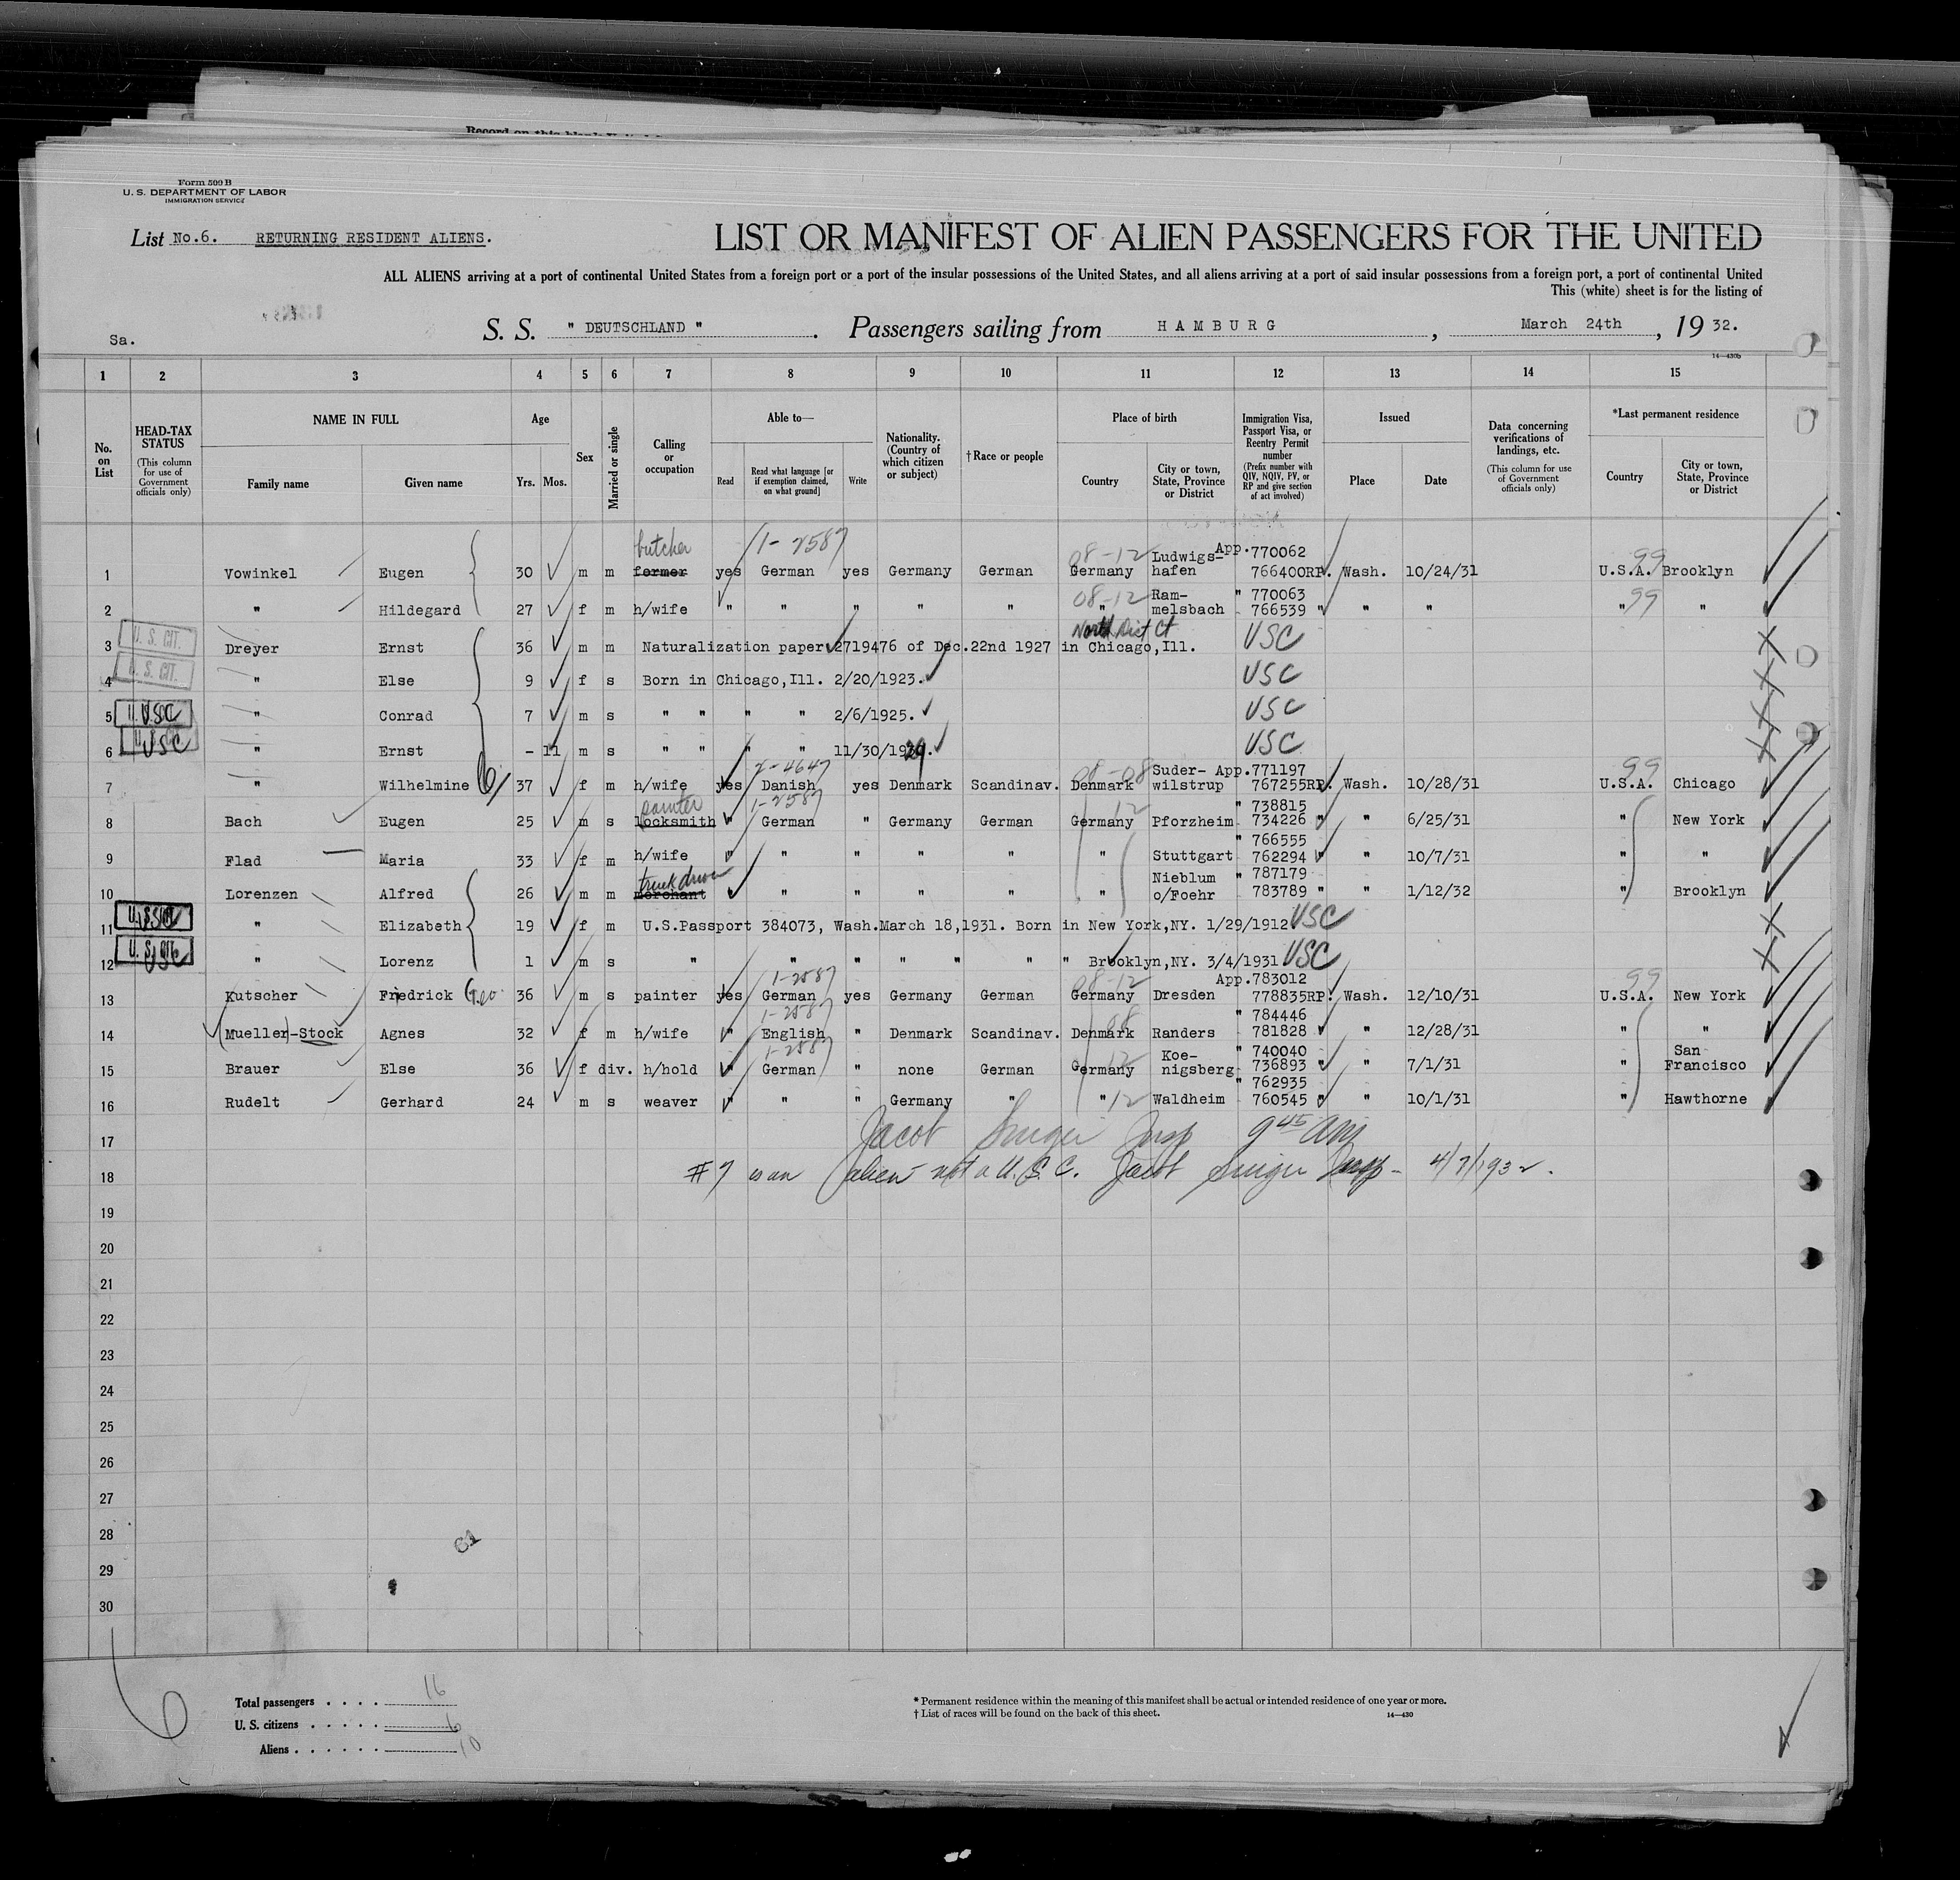 Form 500 B
U. S. DEPARTMENT OF LABOR
IMMIGRATION SERVICE
List No.6. RETURNING RESIDENT ALIENS.
LIST OR MANIFEST OF ALIEN PASSENGERS FOR THE UNITED
ALL ALIENS arriving at a port of continental United States from a foreign port or a port of the insular possessions of the United States, and all aliens arriving at a port of said insular possessions from a foreign port, a port of continental United
This (white) sheet is for the listing of
Sa. S. S. " DEUTSCHLAND ". Passengers sailing from HAMBURG, March 24th, 19 32.
14—430b
1 2 3 4 5 6 7 8 9 10 11 12 13 14 15
No. on List
HEAD-TAX STATUS (This column for use of Government officials only)
NAME IN FULL Family name Given name
Age Yrs. Mos.
Sex
Married or single
Calling or occupation
Able to— Read Read what language [or if exemption claimed, on what ground] Write
Nationality. (Country of which citizen or subject)
†Race or people
Place of birth Country City or town, State, Province or District
Immigration Visa, Passport Visa, or Reentry Permit number (Prefix number with QIV, NQIV, PV, or RP and give section of act involved)
Issued Place Date
Data concerning verifications of landings, etc. (This column for use of Government officials only)
*Last permanent residence Country City or town, State, Province or District
butcher 1-2587 08-12 Ludwigs- App.770062 99
1 Vowinkel Eugen 30 m m farmer yes German yes Germany German Germany hafen 766400RP. Wash. 10/24/31 U.S.A. Brooklyn
08-12 Ram- " 770063 99
2 " Hildegard 27 f m h/wife " " " " " " melsbach 766539 " " " " "
U. S. CIT. North Dist Ct
3 Dreyer Ernst 36 m m Naturalization paper 2719476 of Dec.22nd 1927 in Chicago,Ill. USC
U. S. CIT.
4 " Else 9 f s Born in Chicago,Ill. 2/20/1923. USC
5 USC " Conrad 7 m s " " " " 2/6/1925. USC
6 USC " Ernst - 11 m s " " " " 11/30/1929. USC
2-4647 08-08 Suder- App.771197 99
7 " Wilhelmine 37 f m h/wife yes Danish yes Denmark Scandinav. Denmark wilstrup 767255RP. Wash. 10/28/31 U.S.A. Chicago
painter 1-2587 12 " 738815
8 Bach Eugen 25 m s locksmith " German " Germany German Germany Pforzheim 734226 " " 6/25/31 " New York
" 766555
9 Flad Maria 33 f m h/wife " " " " " " Stuttgart 762294 " " 10/7/31 " "
truck driver Nieblum " 787179
10 Lorenzen Alfred 26 m m merchant " " " " " o/Foehr 783789 " " 1/12/32 " Brooklyn
U. S. CIT.
11 " Elizabeth 19 f m U.S.Passport 384073, Wash.March 18,1931. Born in New York,NY. 1/29/1912 USC
U. S. CIT.
12 USC " Lorenz 1 m s " " " " " " " Brooklyn,NY. 3/4/1931 USC
1-2587 08-12 App.783012 99
13 Kutscher Fredrick Geo. 36 m s painter yes German yes Germany German Germany Dresden 778835RP. Wash. 12/10/31 U.S.A. New York
1-2587 08 " 784446
14 (Mueller)-Stock Agnes 32 f m h/wife " English " Denmark Scandinav. Denmark Randers 781828 " 12/28/31 " "
1-2587 12 Koe- " 740040 San
15 Brauer Else 36 f div. h/hold " German " none German Germany nigsberg 736893 " " 7/1/31 " Francisco
" 762935
16 Rudelt Gerhard 24 m s weaver " " " Germany " " 12 Waldheim 760545 " " 10/1/31 " Hawthorne
17 Jacob Singer Insp 9 45 am
18 #7 is an alien not a U.S.C. Jacob Singer Insp - 4/2/1932.
19
20
21
22
23
24
25
26
27
28
29
30
Total passengers . . . . 16
U. S. citizens . . . . . 6
Aliens . . . . . . 10
* Permanent residence within the meaning of this manifest shall be actual or intended residence of one year or more.
† List of races will be found on the back of this sheet. 14—430